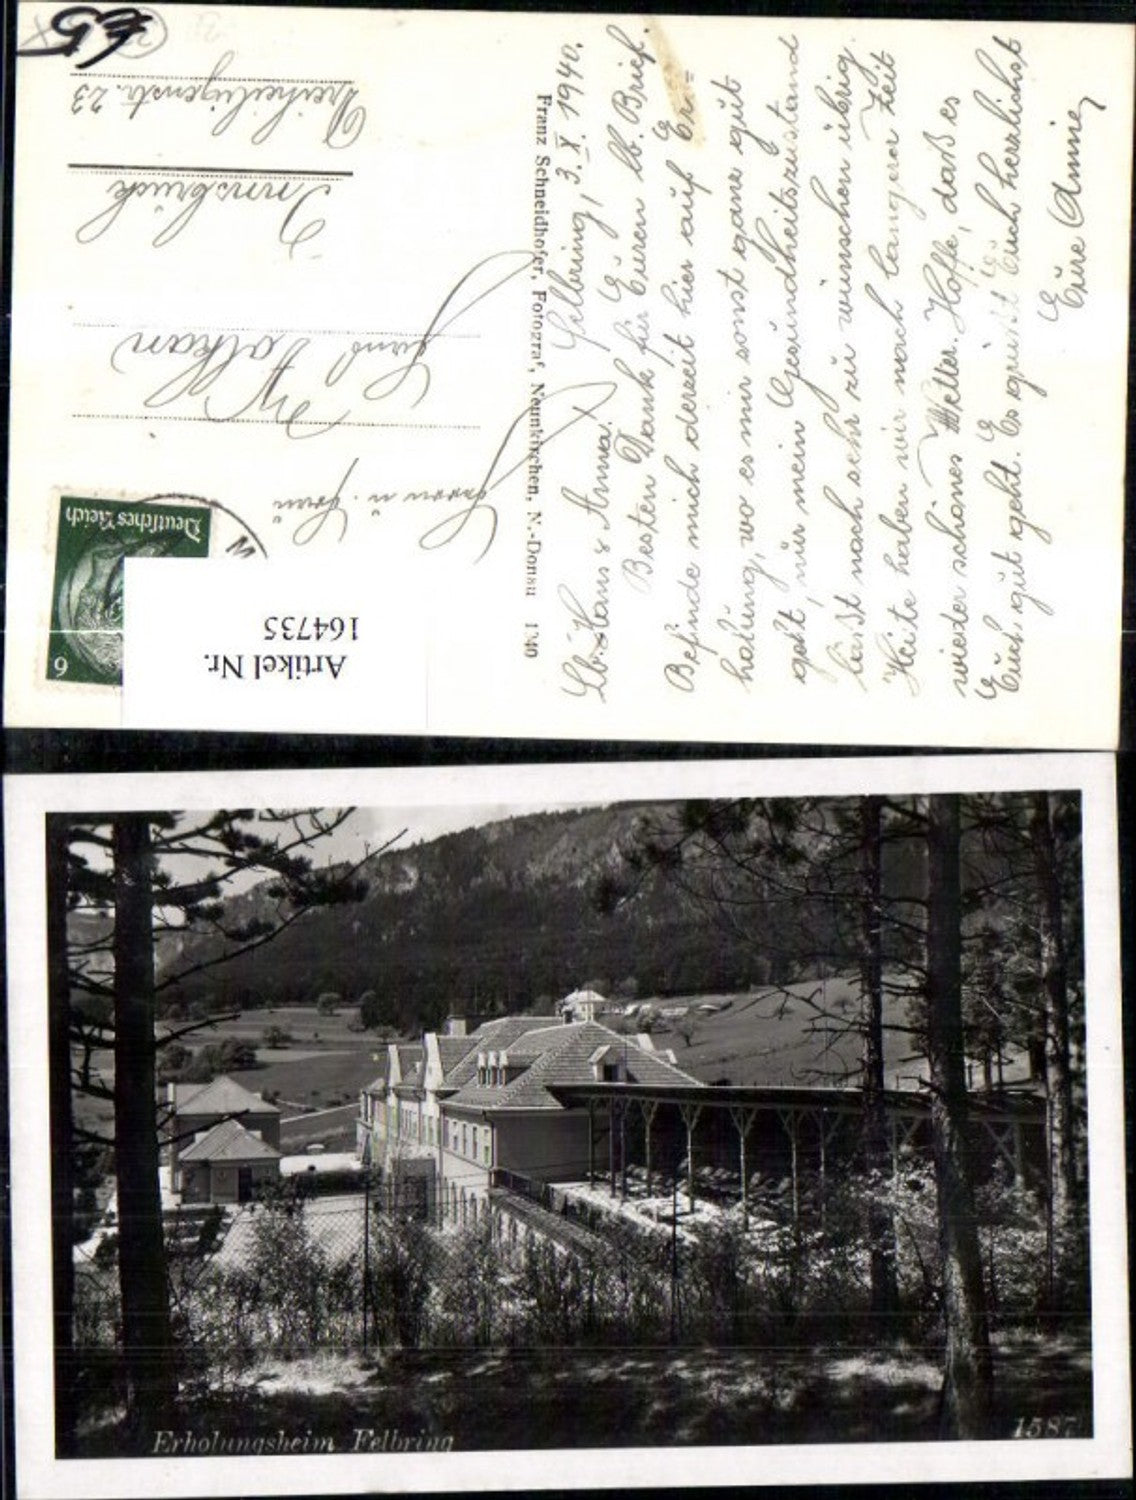 Felbring, 3. X. 1940.
Lb. Hans & Anna!
Besten Dank für Eueren lb. Brief.
Befinde mich derzeit hier auf Er=
holung, wo es mir sonst ganz gut
geht, nur mein Gesundheitszustand
läßt noch sehr zu wünschen übrig.
Heute haben wir nach langerer Zeit
wieder schönes Wetter. Hoffe, daß es
Euch gut geht. Es grüßt Euch herzlichst
Eure Anna
Franz Schneidhofer, Fotograf, Neunkirchen, N.-Donau 1940
Deutsches Reich
6
Herrn u. Frau
Hans
Innsbruck
Dreiheiligenstr. 23
Artikel Nr.
164735
Erholungsheim Felbring
1587